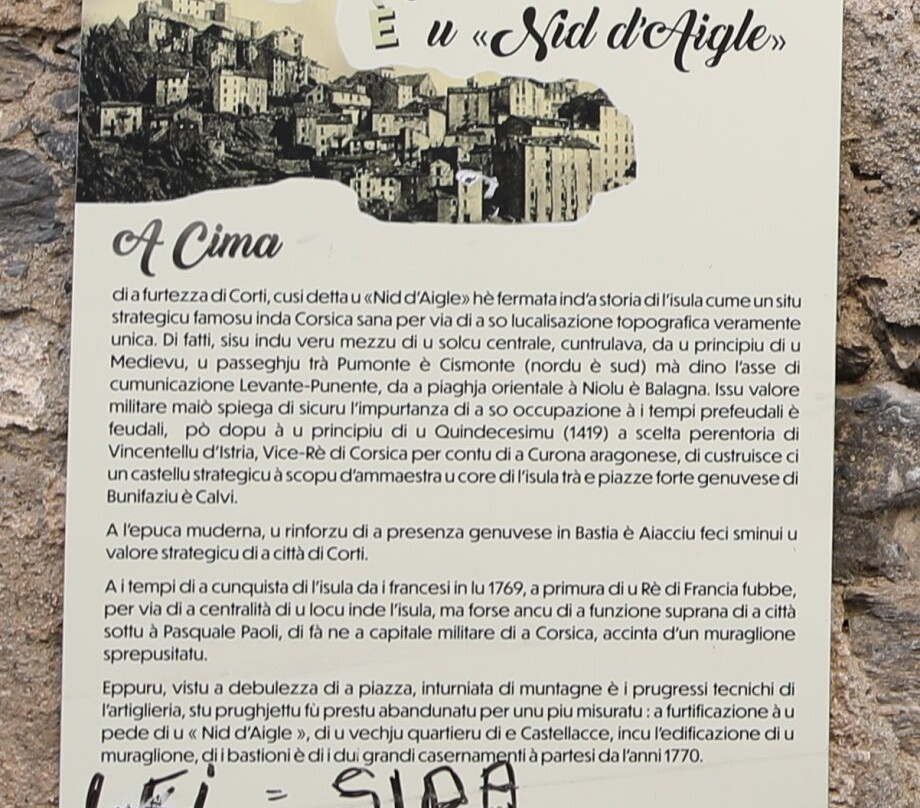 u «Nid d'Aigle»
A Cima
di a furtezza di Corti, cusi detta u «Nid d'Aigle» hè fermata ind'a storia di l'isula cume un situ
strategicu famosu inda Corsica sana per via di a so lucalisazione topografica veramente
unica. Di fatti, sisu indu veru mezzu di u solcu centrale, cuntrulava, da u principiu di u
Medievu, u passeghju trà Pumonte è Cismonte (nordu è sud) mà dino l'asse di
cumunicazione Levante-Punente, da a piaghja orientale à Niolu è Balagna. Issu valore
militare maiò spiega di sicuru l'impurtanza di a so occupazione à i tempi prefeudali è
feudali, pò dopu à u principiu di u Quindecesimu (1419) a scelta perentoria di
Vincentellu d'Istria, Vice-Rè di Corsica per contu di a Curona aragonese, di custruisce ci
un castellu strategicu à scopu d'ammaestra u core di l'isula trà e piazze forte genuvese di
Bunifaziu è Calvi.
A l'epuca muderna, u rinforzu di a presenza genuvese in Bastia è Aiacciu feci sminui u
valore strategicu di a città di Corti.
A i tempi di a cunquista di l'isula da i francesi in lu 1769, a primura di u Rè di Francia fubbe,
per via di a centralità di u locu inde l'isula, ma forse ancu di a funzione suprana di a città
sottu à Pasquale Paoli, di fà ne a capitale militare di a Corsica, accinta d'un muraglione
sprepusitatu.
Eppuru, vistu a debulezza di a piazza, inturniata di muntagne è i prugressi tecnichi di
l'artiglieria, stu prughjettu fù prestu abandunatu per unu piu misuratu : a furtificazione à u
pede di u « Nid d'Aigle », di u vechju quartieru di e Castellacce, incu l'edificazione di u
muraglione, di i bastioni è di i dui grandi casernamenti à partesi da l'anni 1770.
= SIDA